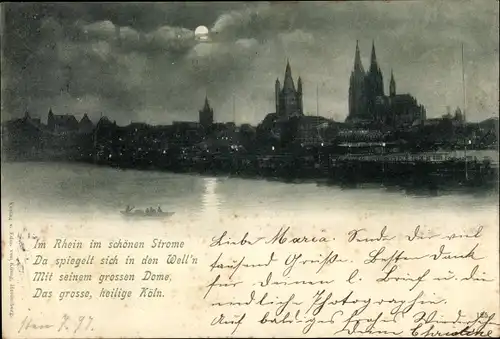 Im Rhein im schönen Strome
Da spiegelt sich in den Well'n
Mit seinem grossen Dome,
Das grosse, heilige Köln.
Liebe Maria. Sende Dir viel
tausend Grüße. Besten Dank
für Deinen l. Brief u. die
niedliche Photographie.
Auf baldiges frohes
Deine Christine